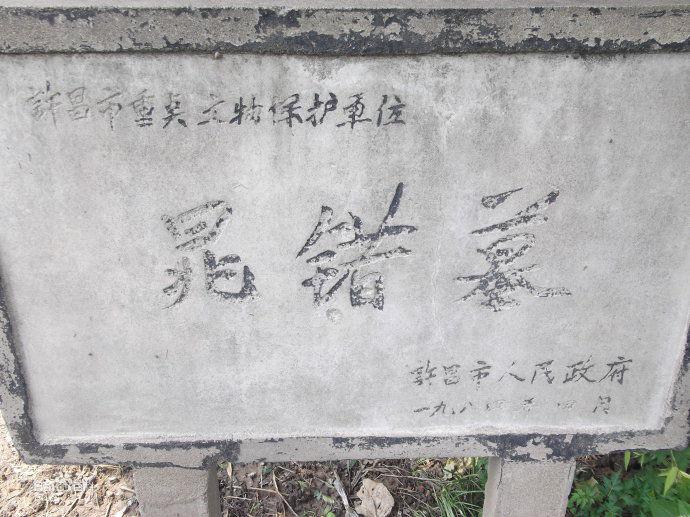 許昌市重点文物保护单位
晁错墓
許昌市人民政府
一九八 年 月